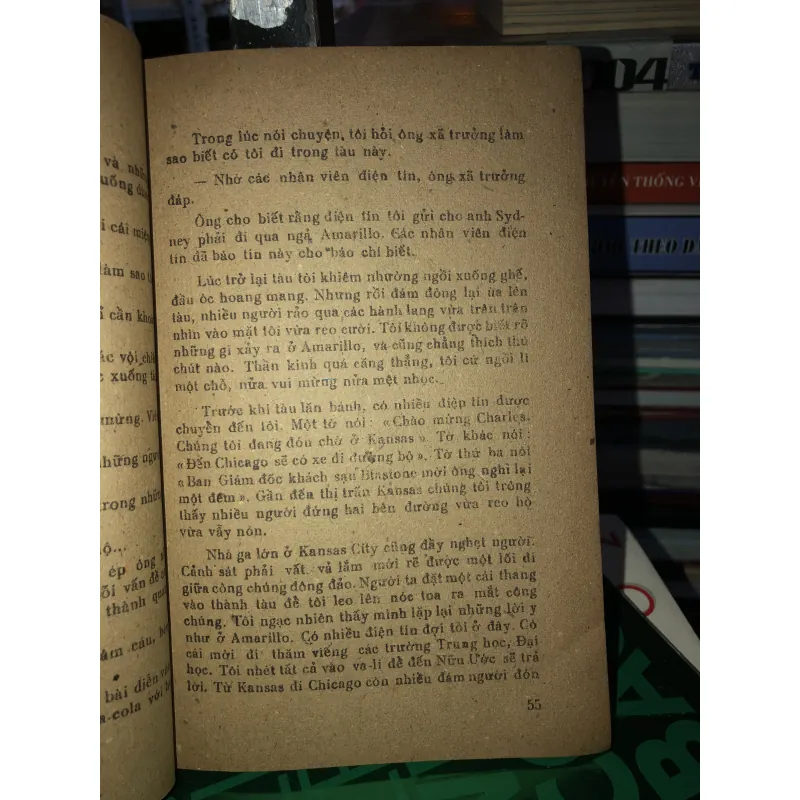 Trong lúc nói chuyện, tôi hỏi ông xã trưởng làm
sao biết có tôi đi trong tàu này.
— Nhờ các nhân viên điện tín, ông xã trưởng
đáp.
Ông cho biết rằng điện tín tôi gửi cho anh Syd-
ney phải đi qua ngả Amarillo. Các nhân viên điện
tín đã báo tin này cho báo chí biết.
Lúc trở lại tàu tôi khiêm nhường ngồi xuống ghế,
đầu óc hoang mang. Nhưng rồi đám đông lại ùa lên
tàu, nhiều người rảo qua các hành lang vừa trên trân
nhìn vào mặt tôi vừa reo cười. Tôi không được biết rõ
những gì xảy ra ở Amarillo, và cũng chẳng thích thú
chút nào. Thần kinh quá căng thẳng, tôi cứ ngồi lì
một chỗ, nửa vui mừng nửa mệt nhọc.
Trước khi tàu lăn bánh, có nhiều điệp tín được
chuyền đến tôi. Một tờ nói: «Chào mừng Charles.
Chúng tôi đang đón chờ ở Kansas». Tờ khác nói:
«Đến Chicago sẽ có xe đi đường bộ». Tờ thứ ba nói
«Ban Giám đốc khách sạn Blastone mời ông nghỉ lại
một đêm». Gần đến thị trấn Kansas chúng tôi trông
thấy nhiều người đứng hai bên đường vừa reo hò
vừa vẫy nón.
Nhà ga lớn ở Kansas City cũng đầy nghẹt người.
Cảnh sát phải vất vả lắm mới rẽ được một lối đi
giữa công chúng đông đảo. Người ta đặt một cái thang
vào thành tàu để tôi leo lên nóc toa ra mắt công
chúng. Tôi ngạc nhiên thấy mình lặp lại những lời y
như ở Amarillo. Có nhiều điện tín đợi tôi ở đây. Có
cái mời đi thăm viếng các trường Trung học, Đại
học. Tôi nhét tất cả vào va-li để đến Nữu Ước sẽ trả
lời. Từ Kansas đi Chicago còn nhiều đám người đón
55